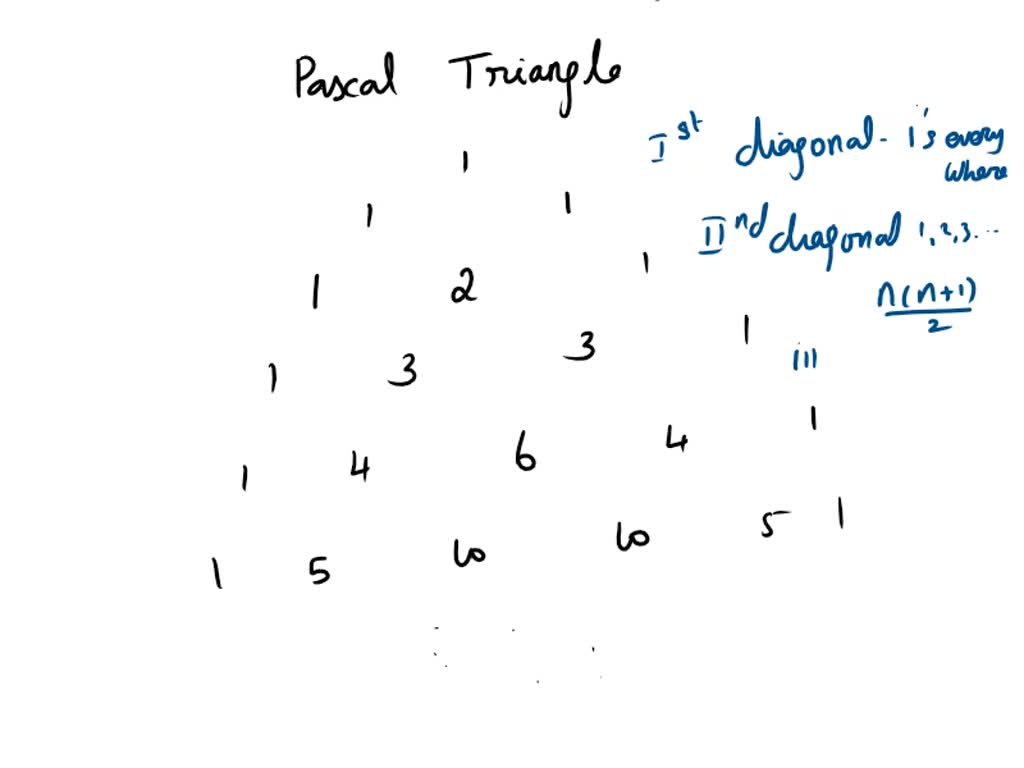 Pascal Triangle
1
1 1
1 2 1
1 3 3 1
1 4 6 4 1
1 5 10 10 5 1
Ist diagonal - 1's every where
IInd diagonal 1, 2, 3...
n(n+1)
2
iii